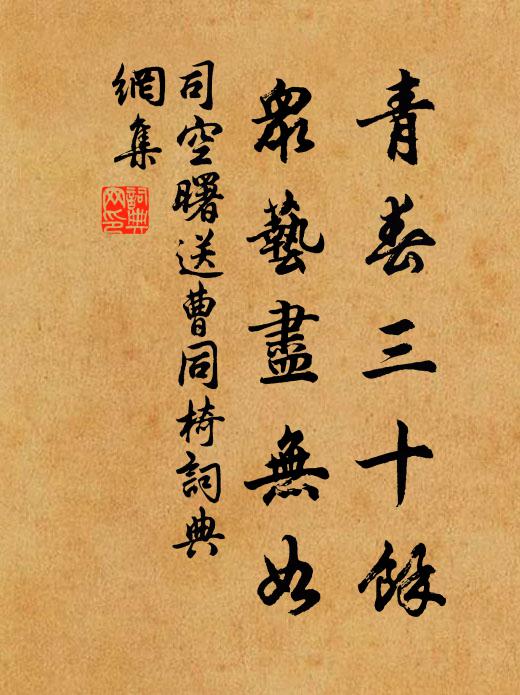 青春三十餘
眾藝盡無如
司空曙送曹同椅詞典
網集
詞典
网印